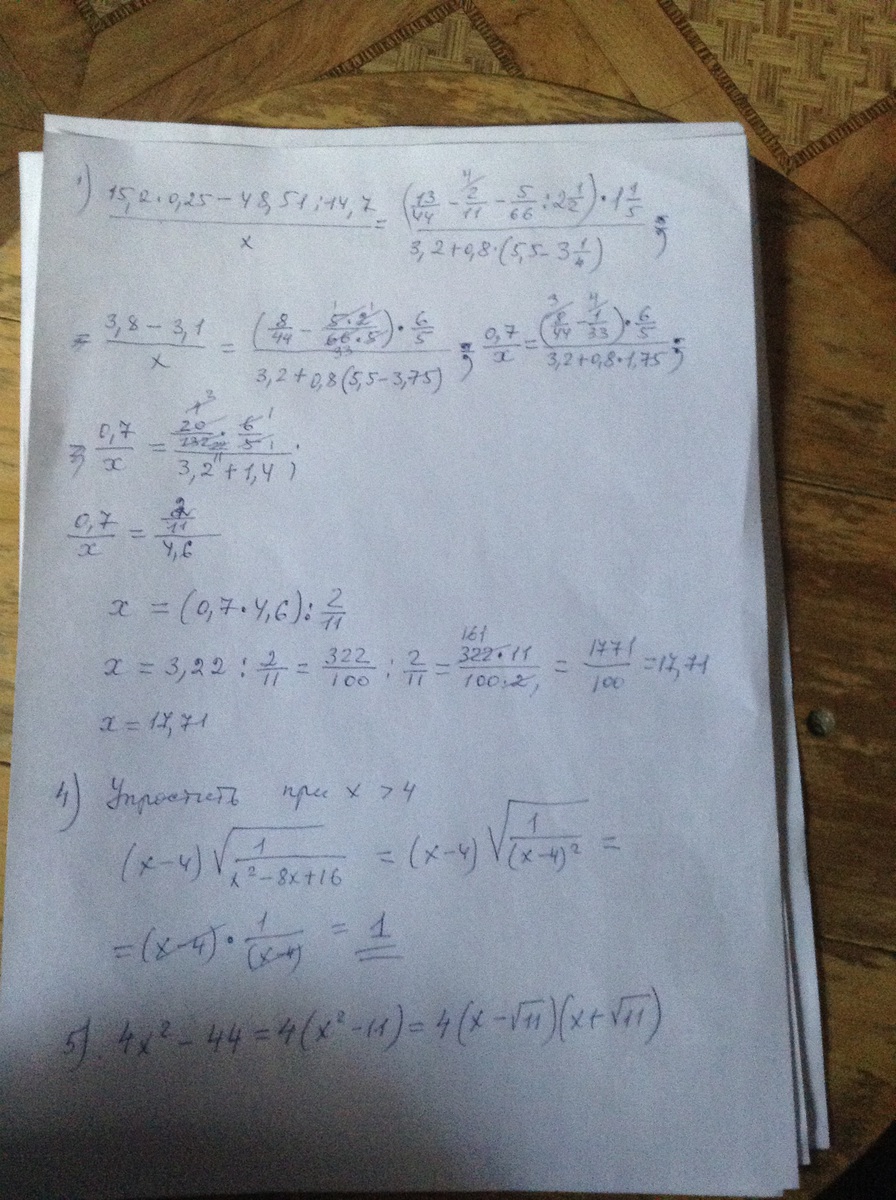 1) (15,2·0,25 − 48,51:14,7)/x = ((13/44 − 2/11 − 5/66 : 2 1/2)·1 1/5)/(3,2+0,8·(5,5−3 1/4));
= (3,8 − 3,1)/x = ((8/44 − 5·2/66·5)·6/5)/(3,2+0,8(5,5−3,75)); 0,7/x = ((8/44 − 1/33)·6/5)/(3,2+0,8·1,75);
0,7/x = (20/132 · 6/5)/(3,2+1,4);
0,7/x = (2/11)/4,6
x = (0,7·4,6) : 2/11
x = 3,22 : 2/11 = 322/100 : 2/11 = 322·11/100·2 = 1771/100 = 17,71
x = 17,71
4) Упростить при x > 4
(x−4) √(1/(x²−8x+16)) = (x−4) √(1/(x−4)²) =
= (x−4) · 1/(x−4) = 1
5) 4x² − 44 = 4(x² − 11) = 4(x − √11)(x + √11)